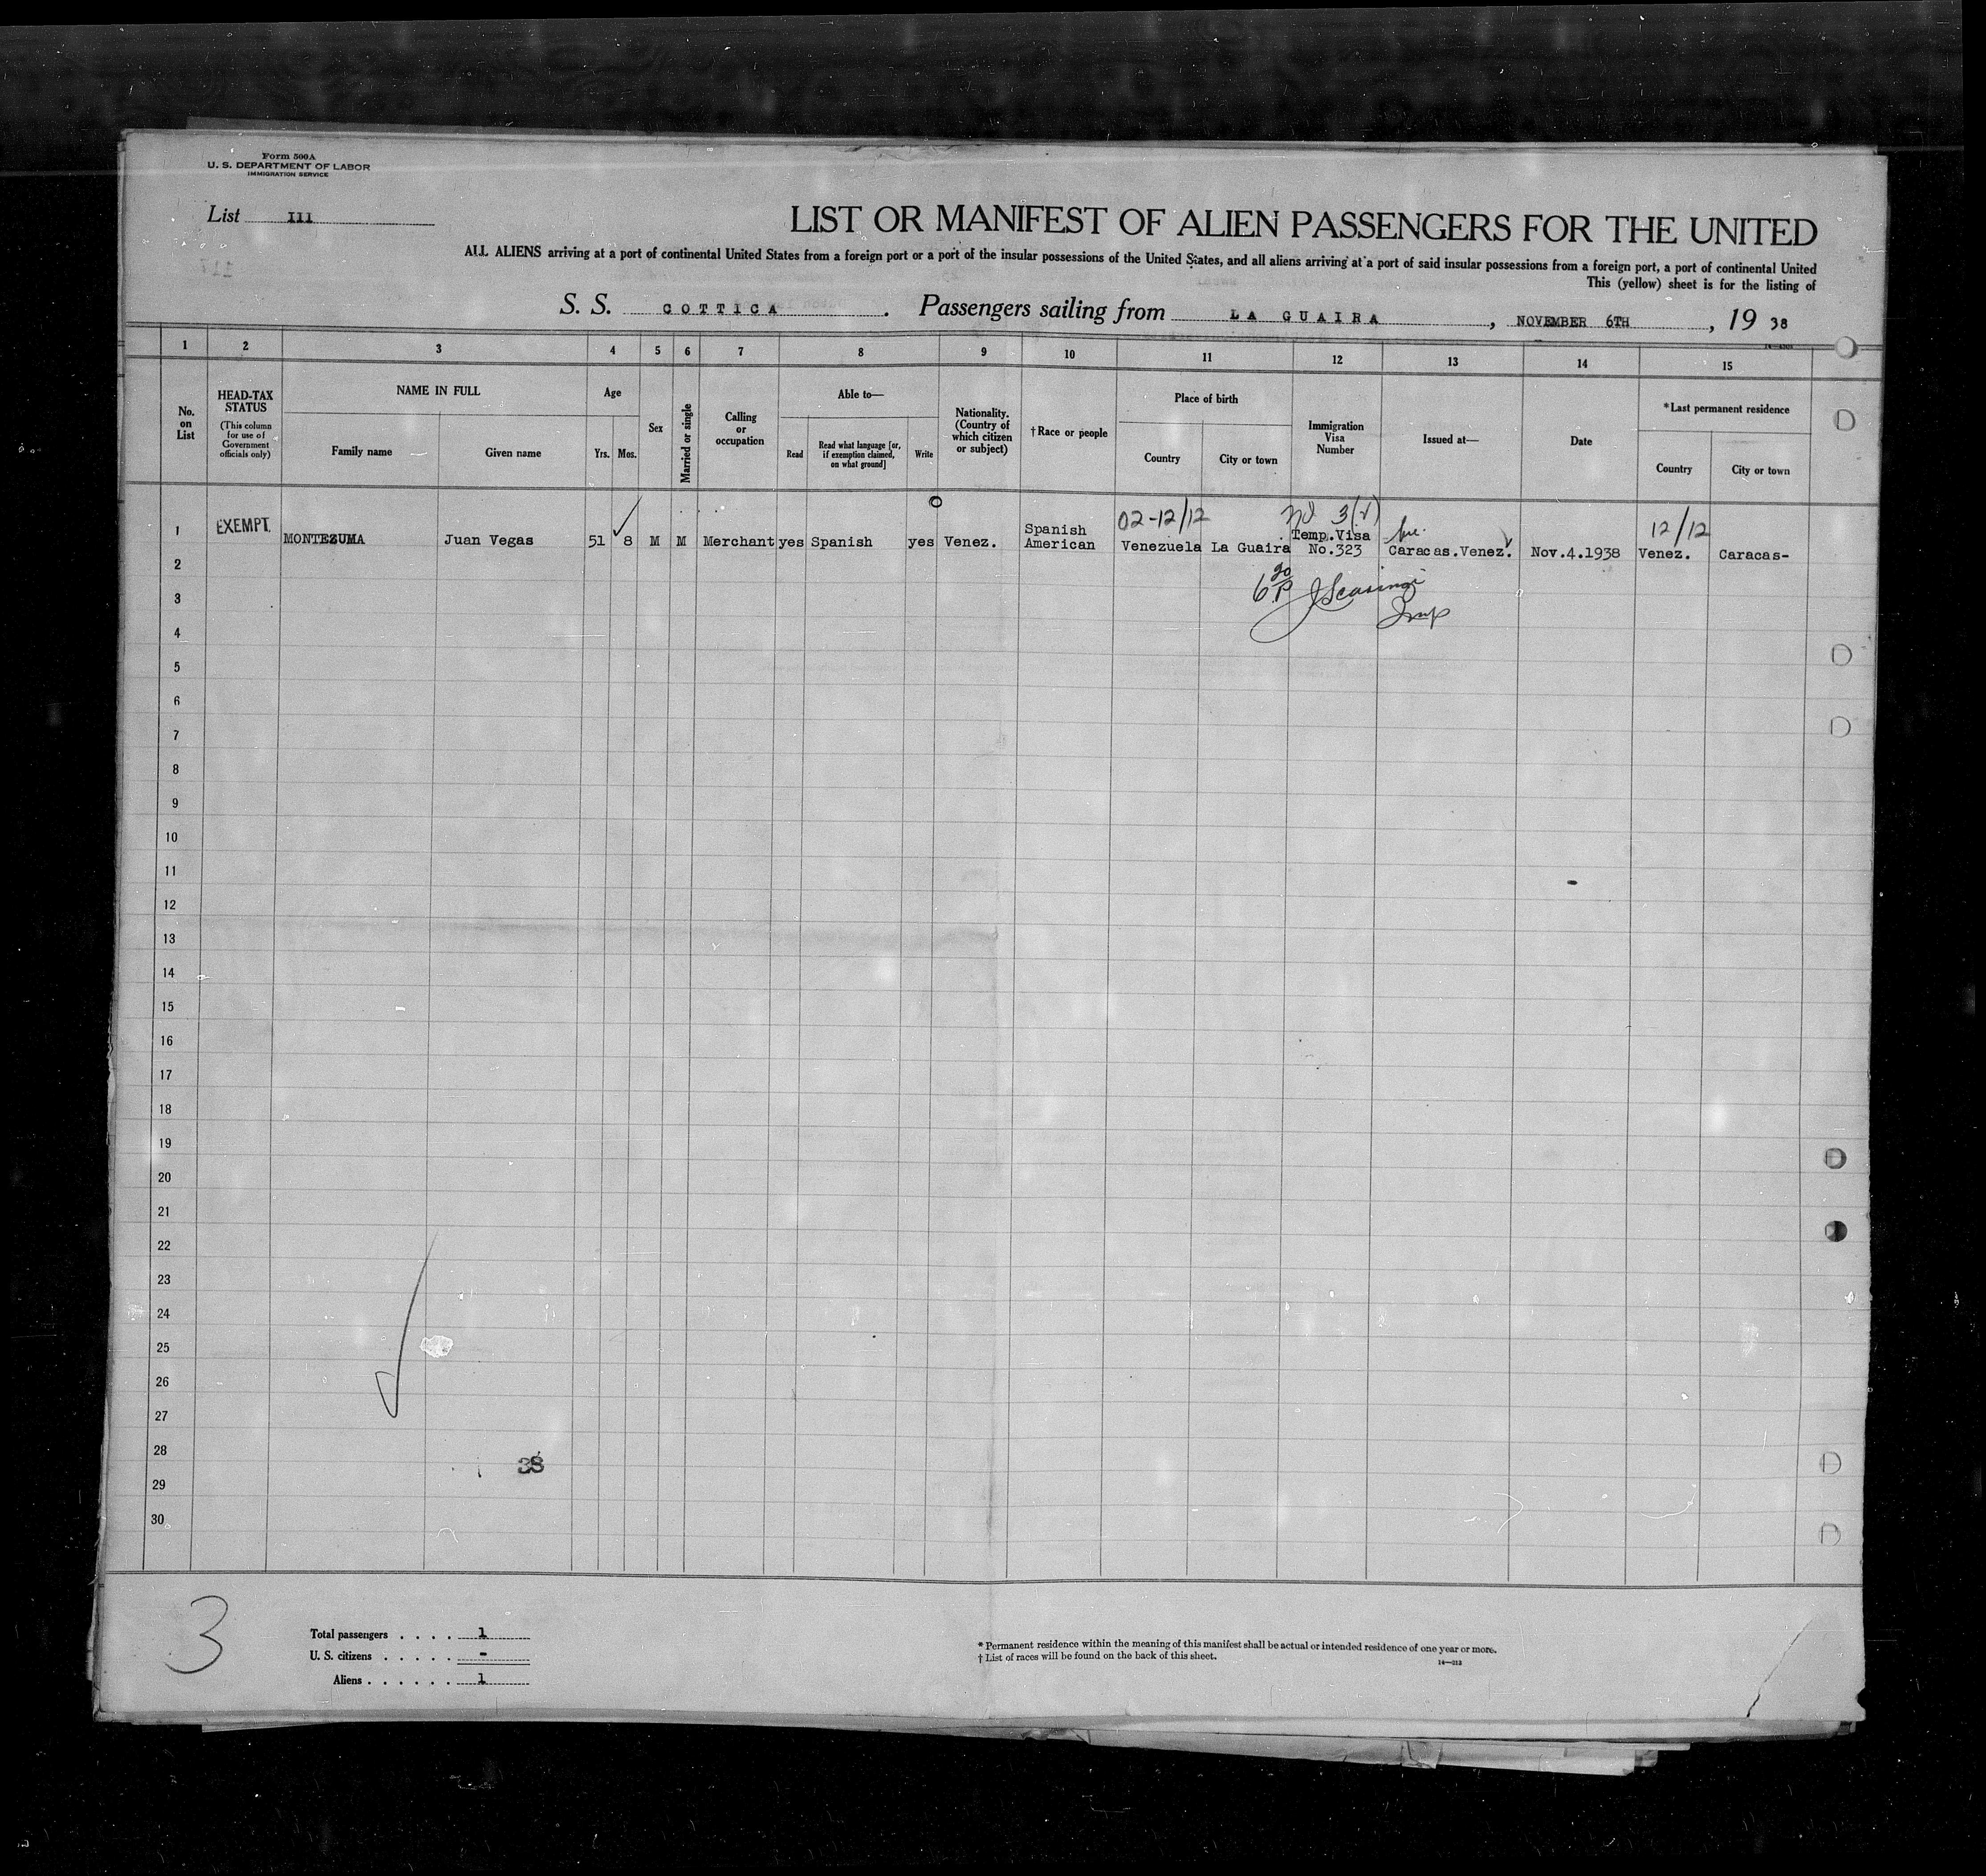 Form 500A
U. S. DEPARTMENT OF LABOR
IMMIGRATION SERVICE
List III
LIST OR MANIFEST OF ALIEN PASSENGERS FOR THE UNITED
ALL ALIENS arriving at a port of continental United States from a foreign port or a port of the insular possessions of the United States, and all aliens arriving at a port of said insular possessions from a foreign port, a port of continental United
This (yellow) sheet is for the listing of
S. S. COTTICA. Passengers sailing from LA GUAIRA, NOVEMBER 6TH, 19 38
1 2 3 4 5 6 7 8 9 10 11 12 13 14 15
No. on List
HEAD-TAX STATUS
(This column for use of Government officials only)
NAME IN FULL
Family name
Given name
Age
Yrs.
Mos.
Sex
Married or single
Calling or occupation
Able to—
Read
Read what language [or, if exemption claimed, on what ground]
Write
Nationality. (Country of which citizen or subject)
†Race or people
Place of birth
Country
City or town
Immigration Visa Number
Issued at—
Date
*Last permanent residence
Country
City or town
02-12/12 3(2) 12/12
1 EXEMPT. MONTEZUMA Juan Vegas 51 8 M M Merchant yes Spanish yes Venez. Spanish American Venezuela La Guaira Temp.Visa No.323 Caracas.Venez. Nov.4.1938 Venez. Caracas-
2
3
4
5
6
7
8
9
10
11
12
13
14
15
16
17
18
19
20
21
22
23
24
25
26
27
28
38
29
30
3
Total passengers . . . . 1
U. S. citizens . . . . . -
Aliens . . . . . . 1
* Permanent residence within the meaning of this manifest shall be actual or intended residence of one year or more.
† List of races will be found on the back of this sheet.
14—213